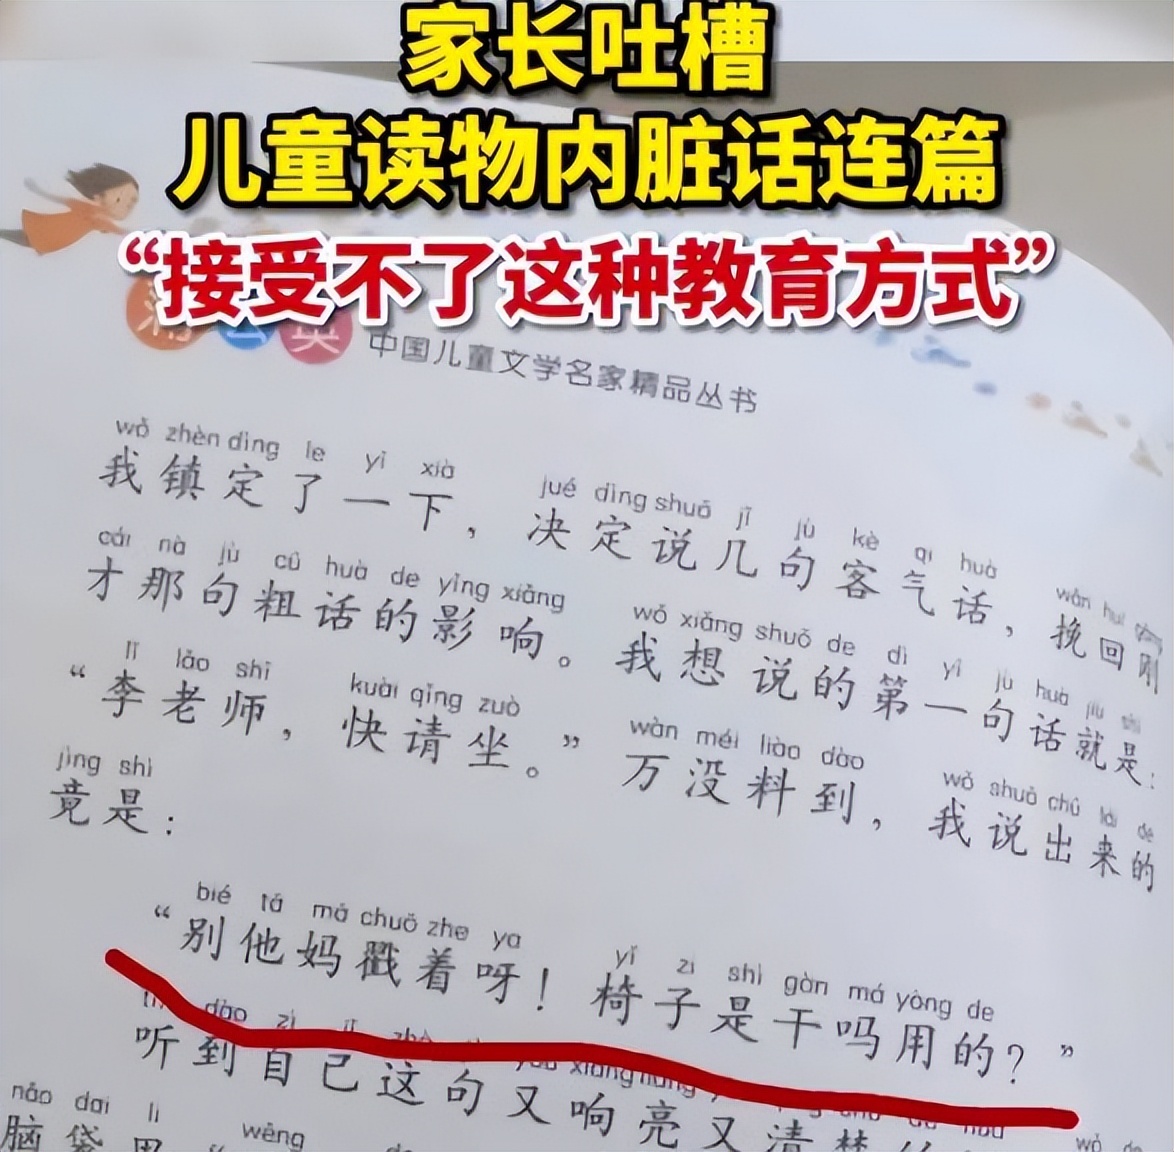 家长吐槽
儿童读物内脏话连篇
“接受不了这种教育方式”
中国儿童文学名家精品丛书
wǒ zhèn dìng le yí xià jué dìng shuō jǐ jù kè qi huà
我镇定了一下，决定说几句客气话，挽回刚
cái nà jù cū huà de yǐng xiǎng wǒ xiǎng shuō de dì yī jù huà jiù shì
才那句粗话的影响。我想说的第一句话就是：
lǐ lǎo shī kuài qǐng zuò wàn méi liào dào wǒ shuō chū lái de
“李老师，快请坐。”万没料到，我说出来的
jìng shì
竟是：
bié tā mā chuō zhe ya yǐ zi shì gàn má yòng de
“别他妈戳着呀！椅子是干吗用的？”
dào zì jǐ
听到自己这句又响亮又清楚
nǎo dai li wēng
脑袋里“